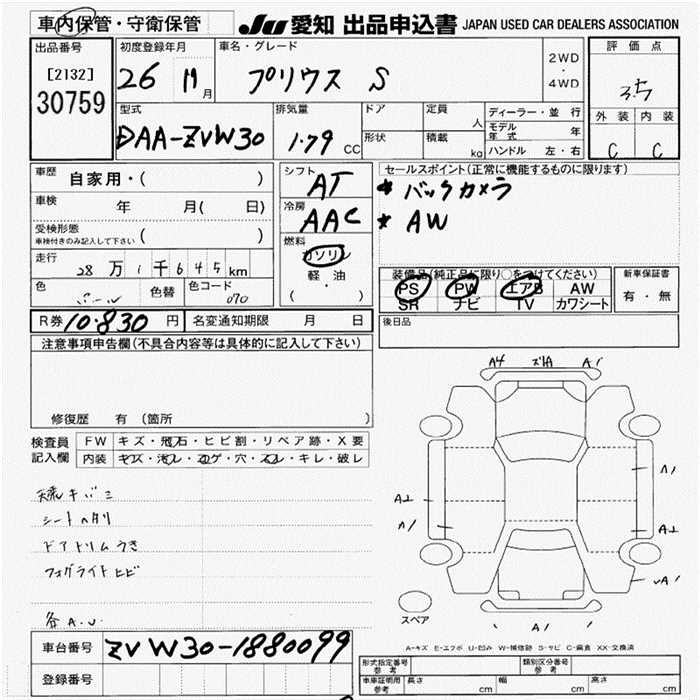 車内保管・守衛保管 JU 愛知 出品申込書 JAPAN USED CAR DEALERS ASSOCIATION
出品番号
[2132]
30759
初度登録年月
26 11月
車名・グレード
プリウス S
2WD
・
4WD
評価点
3.5
外装 内装
C C
型式
DAA-ZVW30
排気量
1.79 CC
ドア
形状
定員 人
積載 kg
ディーラー・並行
モデル年式 年
ハンドル 左・右
車歴 自家用・( )
車検 年 月( 日)
受検形態
車検付きのみ記入して下さい ( )
走行 28万1千645km
色 パール 色替 色コード 070
シフト AT
冷房 AAC
燃料
ガソリン
軽・油
( ・ )
セールスポイント(正常に機能するものに限ります)
* バックカメラ
* AW
装備品(純正品に限り○をつけてください)
PS PW エアB AW
SR ナビ TV カワシート
新車保証書
有・無
R券 10.830 円 名変通知期限 月 日
後日品
注意事項申告欄(不具合内容等は具体的に記入して下さい)
修復歴 有 (箇所 )
検査員記入欄
FW キズ・飛石・ヒビ割・リペア跡・X要
内装 キズ・汚レ・コゲ・穴・スレ・キレ・破レ
天張キバミ
シートヘタリ
ドアトリムうき
フォグライトヒビ
各A.U.
A4 ズレA A1
A1
A2
A1
A2
A1
A1
スペア
A-キズ E-エクボ U-凹み W-補修跡 S-サビ C-腐食 XX-交換済
車台番号 ZVW30-1880099
登録番号
形式指定番号 参考
類別区分番号 参考
車庫証明用 参考 長さ cm 幅 cm 高さ cm